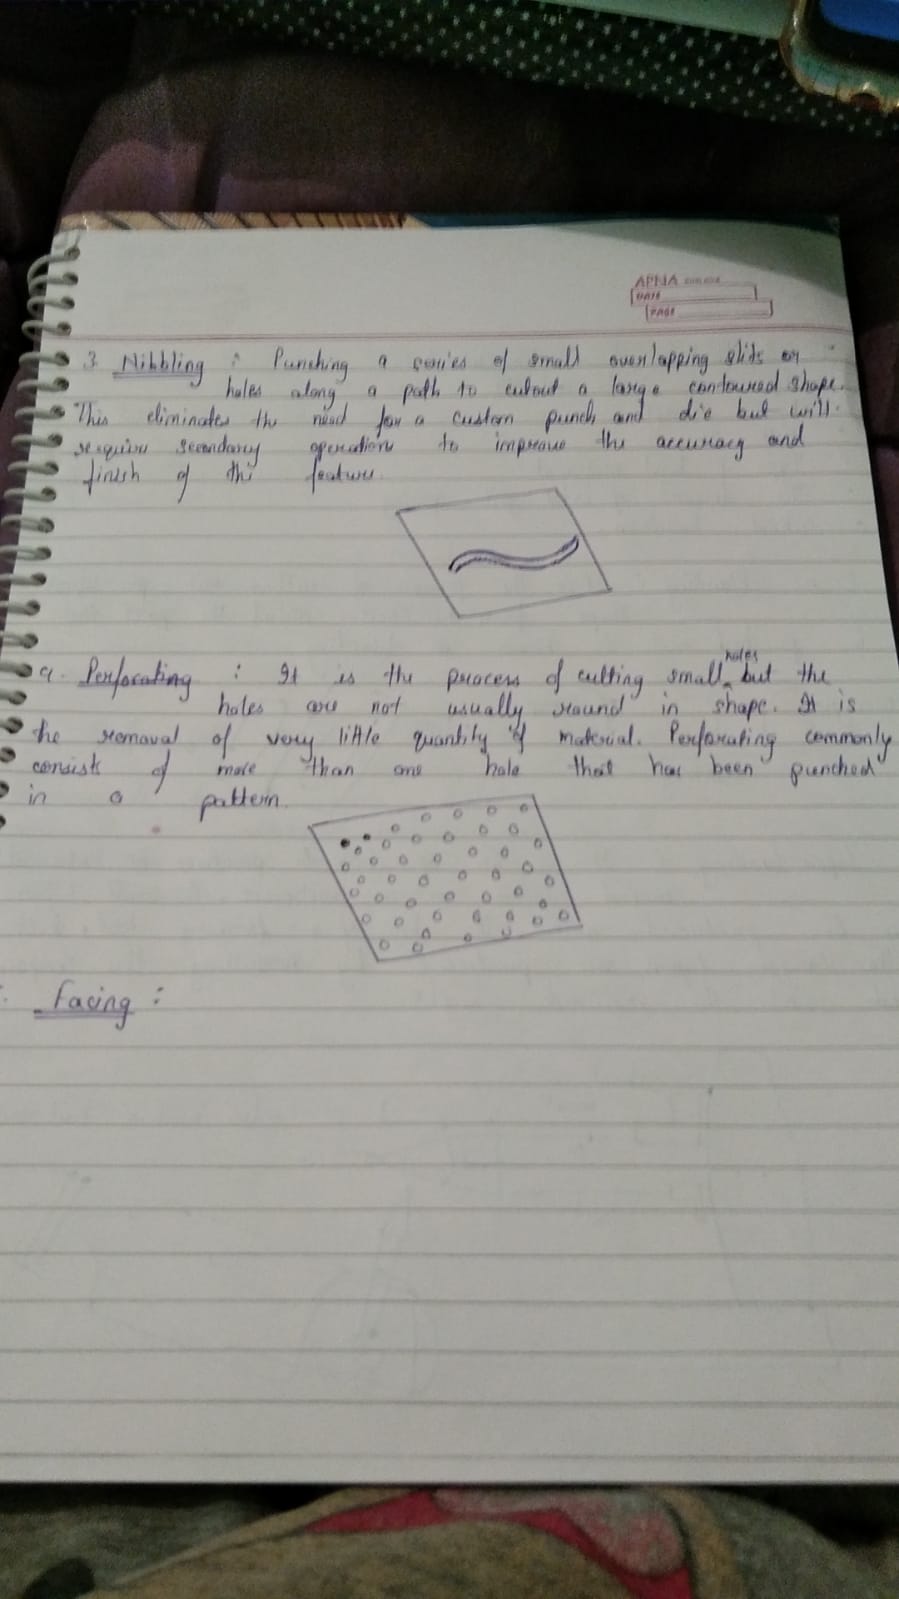 APNA
DATE
PAGE
3. Nibbling : Punching a series of small overlapping slits or
holes along a path to cutout a large contoured shape.
This eliminates the need for a custom punch and die but will
require secondary operations to improve the accuracy and
finish of the feature.
4. Perforating : It is the process of cutting small holes but the
holes are not usually round in shape. It is
the removal of very little quantity of material. Perforating commonly
consists of more than one hole that has been punched
in a pattern.
Facing :